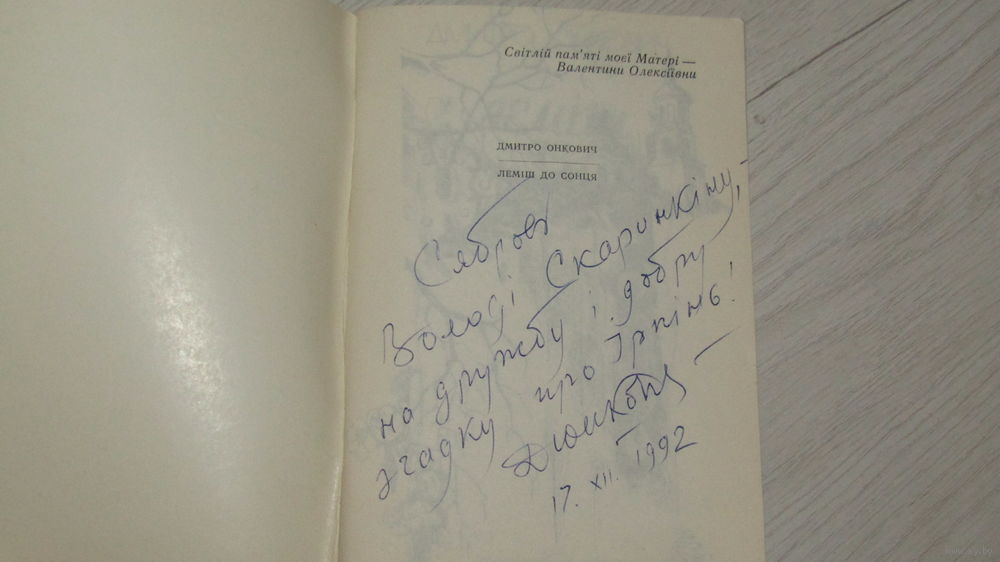 Світлій пам'яті моєї Матері —
Валентини Олексіївни
ДМИТРО ОНКОВИЧ
ЛЕМІШ ДО СОНЦЯ
Сяброві
Володі Скаринкіну,
на дружбу і добру
згадку про Ірпінь!
17. XII. 1992